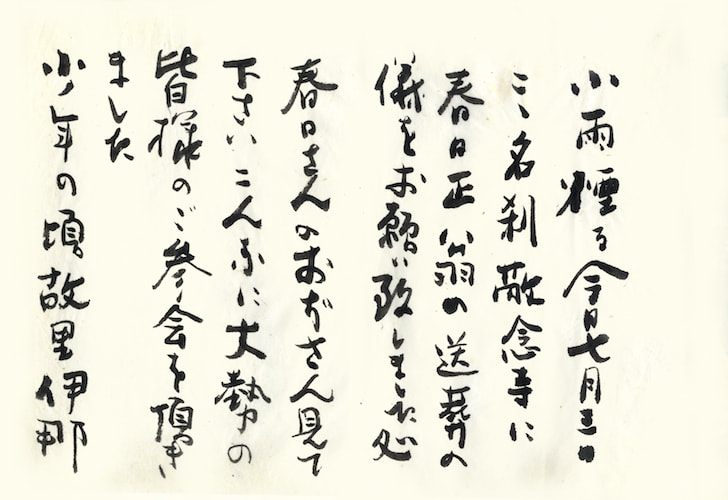 小雨煙る今日七月三日
こゝ名刹敵念寺に
春日正翁の送葬の
儀をお願い致しました処
春日さんのおぢさん見て
下さいこんなに大勢の
皆様のご参会を頂き
ました
少年の頃故里伊那